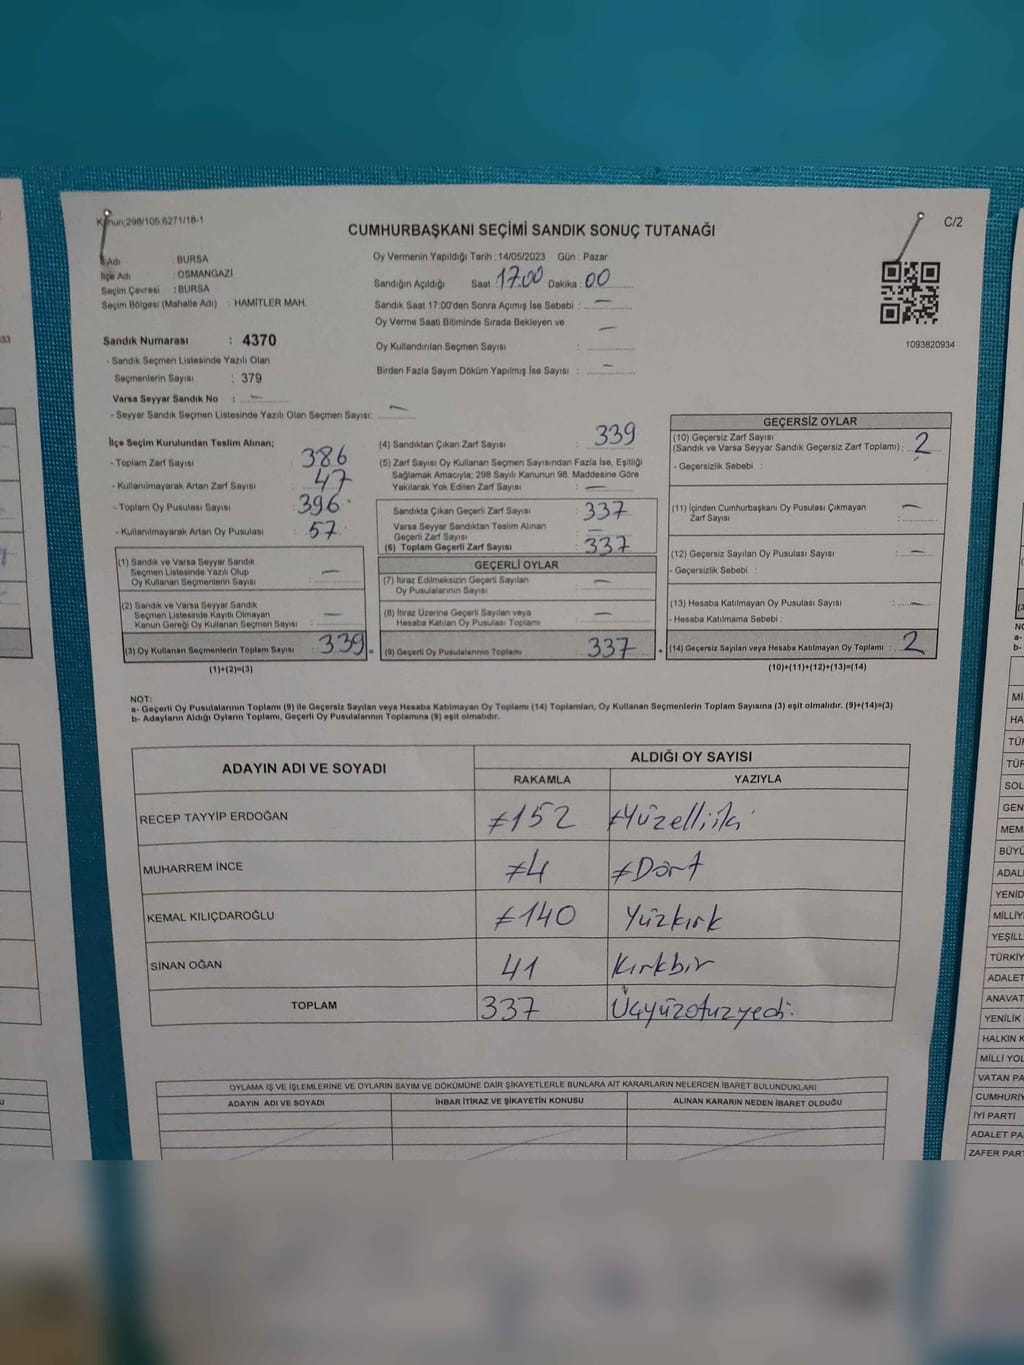 Kanun:298/105,6271/16-1
C/2
CUMHURBAŞKANI SEÇİMİ SANDIK SONUÇ TUTANAĞI
İl Adı : BURSA
İlçe Adı : OSMANGAZİ
Seçim Çevresi : BURSA
Seçim Bölgesi (Mahalle Adı) : HAMİTLER MAH.
Oy Vermenin Yapıldığı Tarih : 14/05/2023 Gün : Pazar
Sandığın Açıldığı Saat : 17.00 Dakika : 00
Sandık Saat 17:00'den Sonra Açımış İse Sebebi : —
Oy Verme Saati Bitiminde Sırada Bekleyen ve —
Oy Kullandırılan Seçmen Sayısı :
Birden Fazla Sayım Döküm Yapılmış İse Sayısı : —
1093820934
Sandık Numarası : 4370
- Sandık Seçmen Listesinde Yazılı Olan
Seçmenlerin Sayısı : 379
Varsa Seyyar Sandık No : —
- Seyyar Sandık Seçmen Listesinde Yazılı Olan Seçmen Sayısı: —
İlçe Seçim Kurulundan Teslim Alınan;
- Toplam Zarf Sayısı : 386
- Kullanılmayarak Artan Zarf Sayısı : 47
- Toplam Oy Pusulası Sayısı : 396
- Kullanılmayarak Artan Oy Pusulası : 57
(1) Sandık ve Varsa Seyyar Sandık
Seçmen Listesinde Yazılı Olup
Oy Kullanan Seçmenlerin Sayısı : —
(2) Sandık ve Varsa Seyyar Sandık
Seçmen Listesinde Kaydı Olmayan
Kanun Gereği Oy Kullanan Seçmen Sayısı : —
(3) Oy Kullanan Seçmenlerin Toplam Sayısı : 339 =
(1)+(2)=(3)
(4) Sandıktan Çıkan Zarf Sayısı : 339
(5) Zarf Sayısı Oy Kullanan Seçmen Sayısından Fazla İse, Eşitliği
Sağlamak Amacıyla; 298 Sayılı Kanunun 98. Maddesine Göre
Yakılarak Yok Edilen Zarf Sayısı : —
Sandıkta Çıkan Geçerli Zarf Sayısı : 337
Varsa Seyyar Sandıktan Teslim Alınan
Geçerli Zarf Sayısı : —
(6) Toplam Geçerli Zarf Sayısı : 337
GEÇERLİ OYLAR
(7) İtiraz Edilmeksizin Geçerli Sayılan
Oy Pusulalarının Sayısı : —
(8) İtiraz Üzerine Geçerli Sayılan veya
Hesaba Katılan Oy Pusulası Toplamı : —
(9) Geçerli Oy Pusulalarının Toplamı : 337 +
GEÇERSİZ OYLAR
(10) Geçersiz Zarf Sayısı
(Sandık ve Varsa Seyyar Sandık Geçersiz Zarf Toplamı) : 2
- Geçersizlik Sebebi :
(11) İçinden Cumhurbaşkanı Oy Pusulası Çıkmayan
Zarf Sayısı : —
(12) Geçersiz Sayılan Oy Pusulası Sayısı : —
- Geçersizlik Sebebi :
(13) Hesaba Katılmayan Oy Pusulası Sayısı : —
- Hesaba Katılmama Sebebi :
(14) Geçersiz Sayılan veya Hesaba Katılmayan Oy Toplamı : 2
(10)+(11)+(12)+(13)=(14)
NOT:
a- Geçerli Oy Pusulalarının Toplamı (9) ile Geçersiz Sayılan veya Hesaba Katılmayan Oy Toplamı (14) Toplamları, Oy Kullanan Seçmenlerin Toplam Sayısına (3) eşit olmalıdır. (9)+(14)=(3)
b- Adayların Aldığı Oyların Toplamı, Geçerli Oy Pusulalarının Toplamına (9) eşit olmalıdır.
ADAYIN ADI VE SOYADI
ALDIĞI OY SAYISI
RAKAMLA YAZIYLA
RECEP TAYYİP ERDOĞAN ≠152 ≠Yüzelliiki
MUHARREM İNCE ≠4 ≠Dört
KEMAL KILIÇDAROĞLU ≠140 Yüzkırk
SİNAN OĞAN 41 Kırkbir
TOPLAM 337 Üçyüzotuzyedi
OYLAMA İŞ VE İŞLEMLERİNE VE OYLARIN SAYIM VE DÖKÜMÜNE DAİR ŞİKAYETLERLE BUNLARA AİT KARARLARIN NELERDEN İBARET BULUNDUKLARI
ADAYIN ADI VE SOYADI İHBAR İTİRAZ VE ŞİKAYETİN KONUSU ALINAN KARARIN NEDEN İBARET OLDUĞU
33
NO
a-
b-
Mİ
HA
TÜ
TÜR
SOL
GEN
MEM
BÜYÜ
ADAL
YENİD
MİLLİY
YEŞİLL
TÜRKİY
ADALET
ANAVAT
YENİLİK
HALKIN K
MİLLİ YOL
VATAN PA
CUMHURİY
İYİ PARTİ
ADALET PA
ZAFER PAR